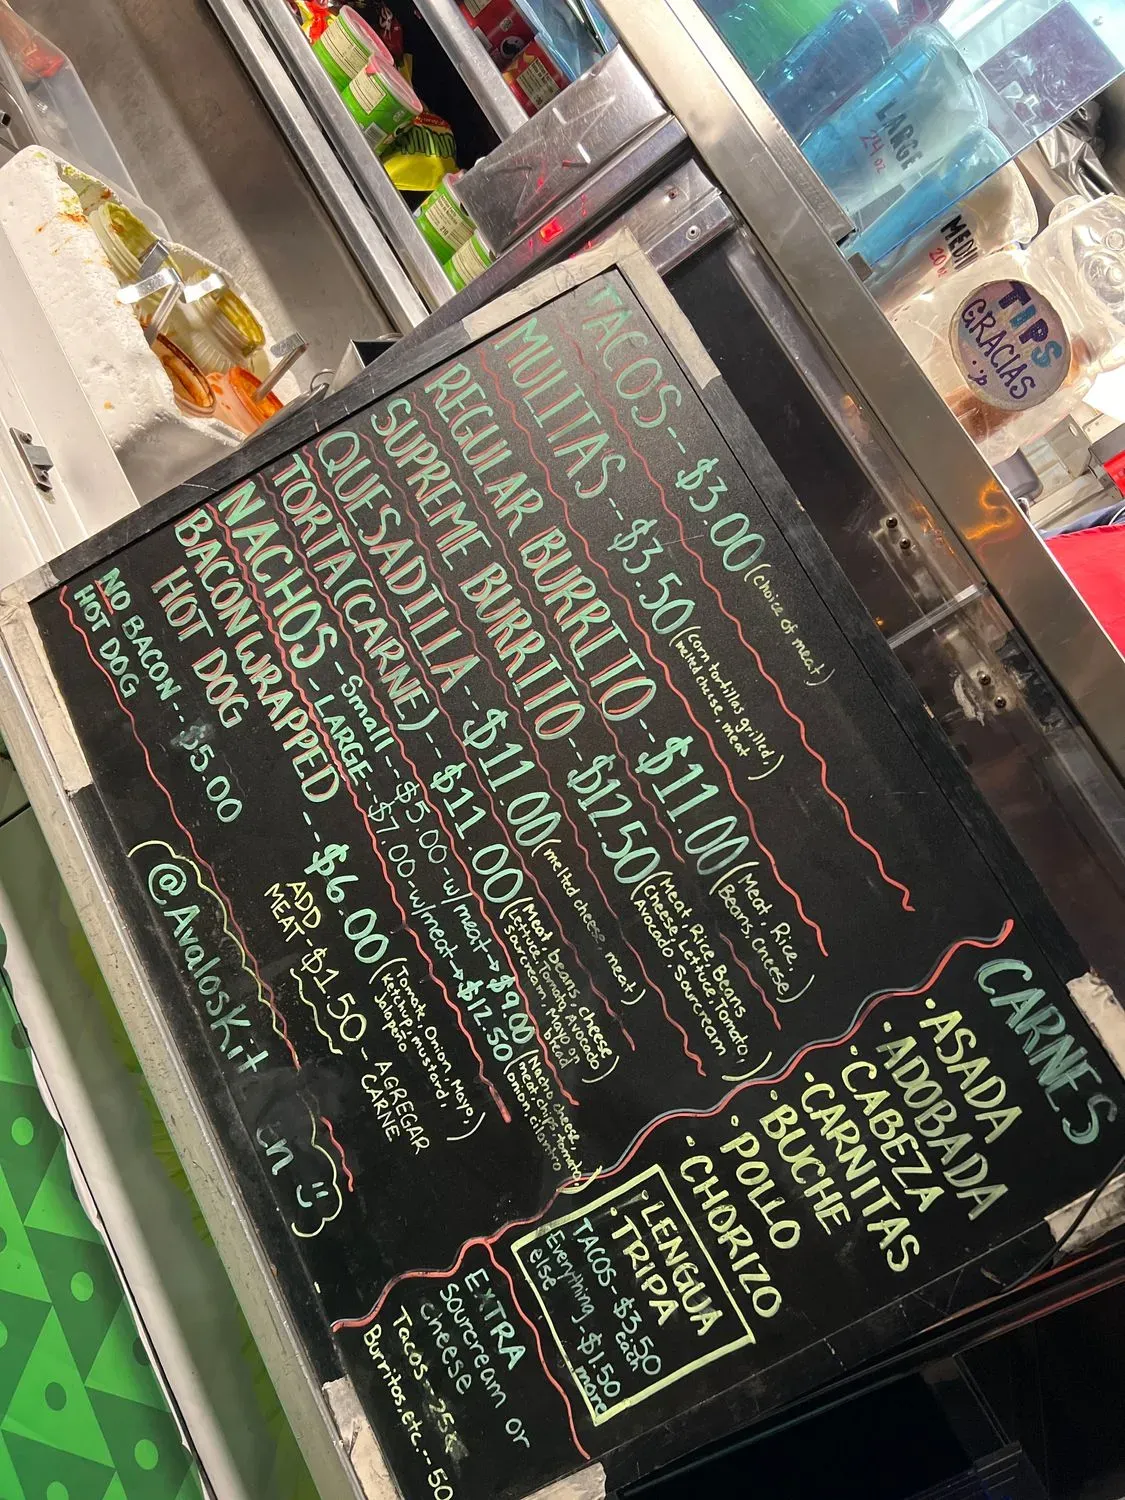 TACOS -- $3.00 (choice of meat)
MULITAS -- $3.50 (corn tortillas grilled,
melted cheese, meat)
REGULAR BURRITO -- $11.00 (Meat, Rice,
Beans, Cheese)
SUPREME BURRITO -- $12.50 (Meat Rice, Beans
Cheese, Lettuce, Tomato,
Avocado, Sourcream)
QUESADILLA -- $11.00 (melted cheese, meat)
TORTA(CARNE) -- $11.00 (Meat, beans, cheese
Lettuce, Tomato, Avocado
Sourcream, Mayo on
bread)
NACHOS - Small -- $5.00 - w/meat → $9.00 (Nacho cheese,
- LARGE - $7.00 - w/meat → $12.50 meat, chips, tomato,
onion, cilantro)
BACON WRAPPED
HOT DOG -- $6.00 (Tomato, Onion, Mayo,
Ketchup, mustard,
Jalapeño)
ADD
MEAT - $1.50 - AGREGAR
CARNE
NO BACON -- $5.00
HOT DOG
@AvalosKit en
CARNES
· ASADA
· ADOBADA
· CABEZA
· CARNITAS
· BUCHE
· POLLO
· CHORIZO
· LENGUA
· TRIPA
TACOS - $3.50
each
Everything - $1.50
else more
EXTRA
Sourcream or
cheese
Tacos -- 25¢
Burritos, etc. -- 50
LARGE
24 oz
20
TIPS
GRACIAS
:P